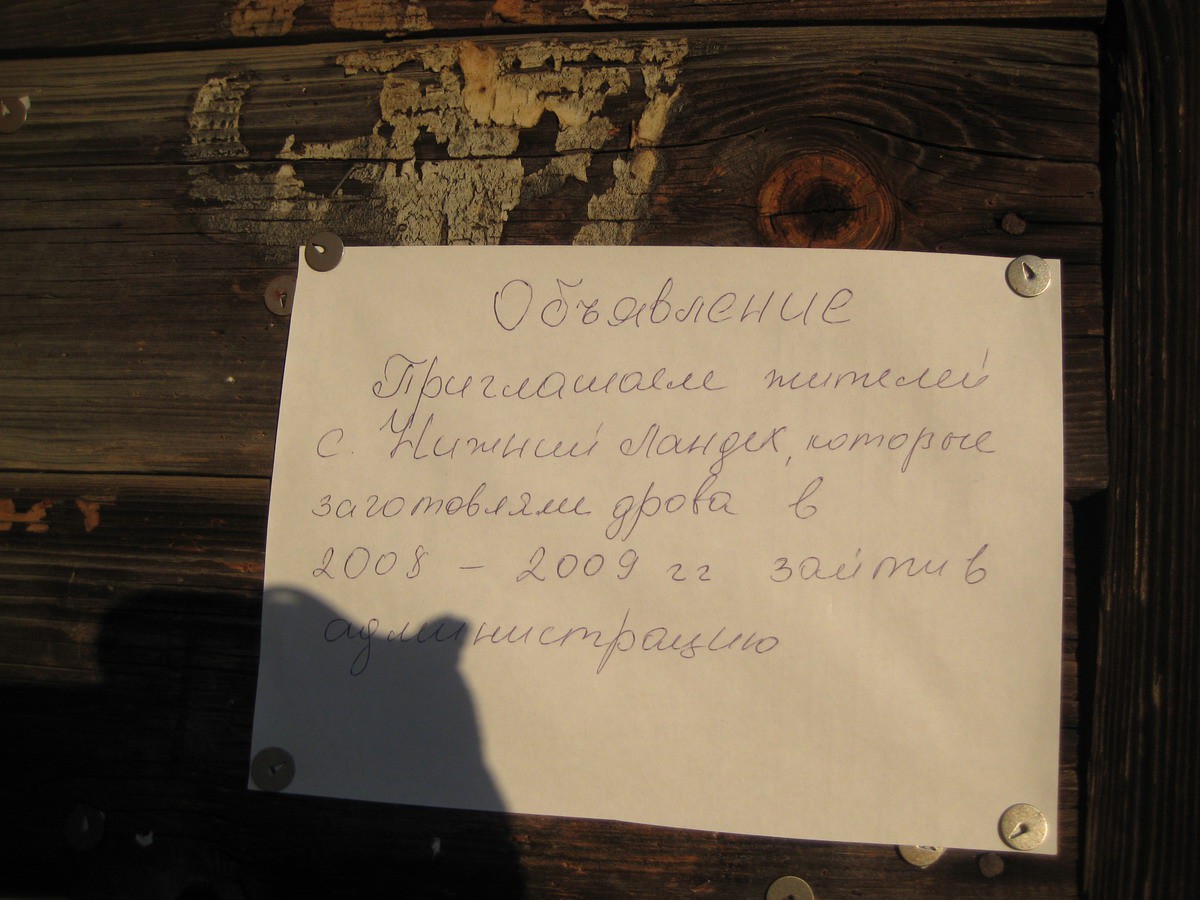 Объявление
Приглашаем жителей
с. Нижний Ландех, которые
заготовляли дрова в
2008 – 2009 гг зайти в
администрацию